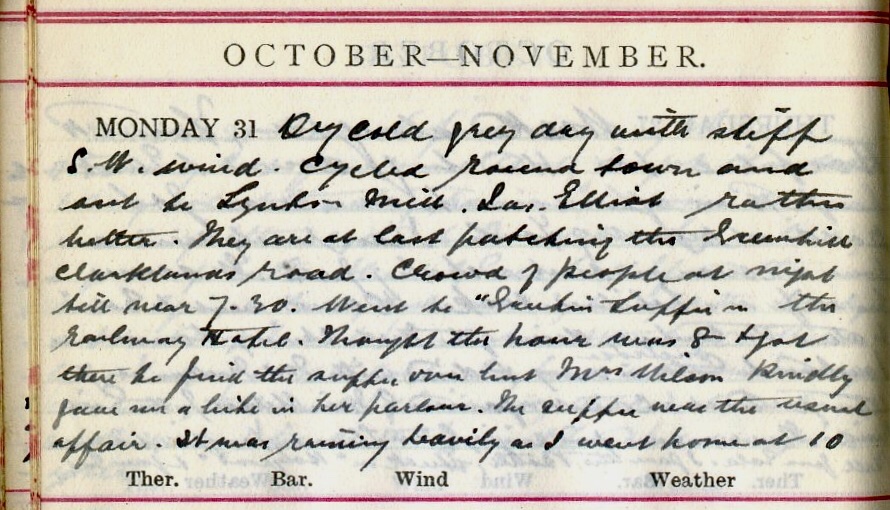 OCTOBER—NOVEMBER.
MONDAY 31 Dry cold grey day with stiff
S.W. wind. Cycled round town and
out to Lynton Mill. Jas. Elliot rather
better. They are at last patching the Greenhill
Clarklands road. Crowd of people at night
till near 7.30. Went to " Supper in the
Railway Hotel. Thought the hour was 8 & got
there to find the supper over but Mrs Wilson kindly
gave me a bite in her parlour. The supper was the usual
affair. It was raining heavily as I went home at 10
Ther. Bar. Wind Weather